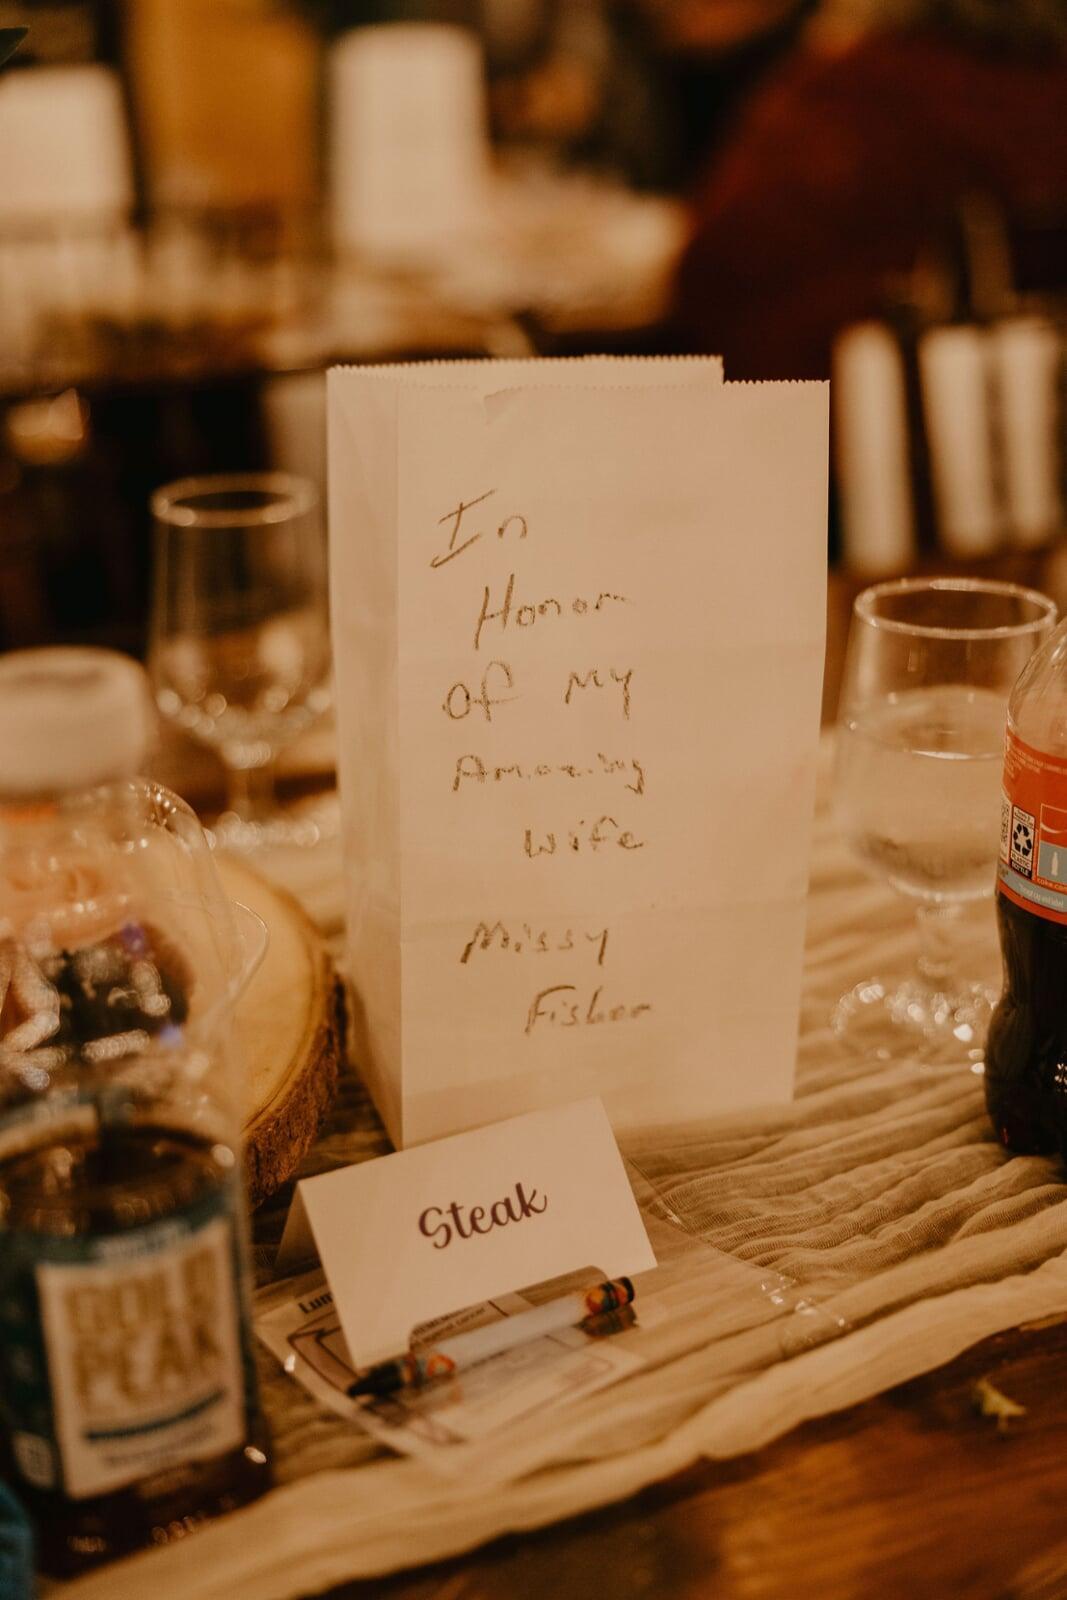 In
Honor
of my
Amazing
wife
Missy
Fisher
Steak
Lum
GOLD
PEAK
coke.com